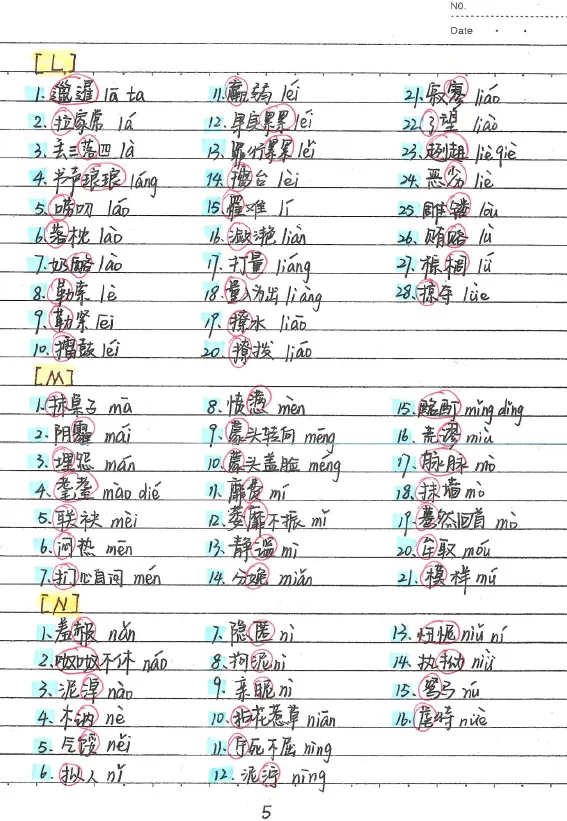 NO.
Date
[L]
1. 邋遢 lā ta
2. 拉家常 lá
3. 丢三落四 là
4. 书声琅琅 láng
5. 唠叨 láo
6. 落枕 lào
7. 奶酪 lào
8. 勒索 lè
9. 勒紧 lēi
10. 擂鼓 léi
11. 羸弱 léi
12. 果实累累 léi
13. 罪行累累 lěi
14. 擂台 lèi
15. 罹难 lí
16. 潋滟 liàn
17. 打量 liáng
18. 量入为出 liàng
19. 撩水 liāo
20. 撩拨 liáo
21. 寂寥 liáo
22. 了望 liào
23. 趔趄 liè qiè
24. 恶劣 liè
25. 雕镂 lòu
26. 贿赂 lù
27. 棕榈 lǘ
28. 掠夺 lüè
[M]
1. 抹桌子 mā
2. 阴霾 mái
3. 埋怨 mán
4. 耄耋 mào dié
5. 联袂 mèi
6. 闷热 mēn
7. 扪心自问 mén
8. 愤懑 mèn
9. 蒙头转向 mēng
10. 蒙头盖脸 méng
11. 靡费 mí
12. 萎靡不振 mǐ
13. 静谧 mì
14. 分娩 miǎn
15. 酩酊 mǐng dǐng
16. 荒谬 miù
17. 脉脉 mò
18. 抹墙 mò
19. 蓦然回首 mò
20. 牟取 móu
21. 模样 mú
[N]
1. 羞赧 nǎn
2. 呶呶不休 náo
3. 泥淖 nào
4. 木讷 nè
5. 气馁 něi
6. 拟人 nǐ
7. 隐匿 nì
8. 拘泥 nì
9. 亲昵 nì
10. 拈花惹草 niān
11. 宁死不屈 nìng
12. 泥泞 nìng
13. 忸怩 niǔ ní
14. 执拗 niù
15. 驽马 nú
16. 虐待 nüè
5